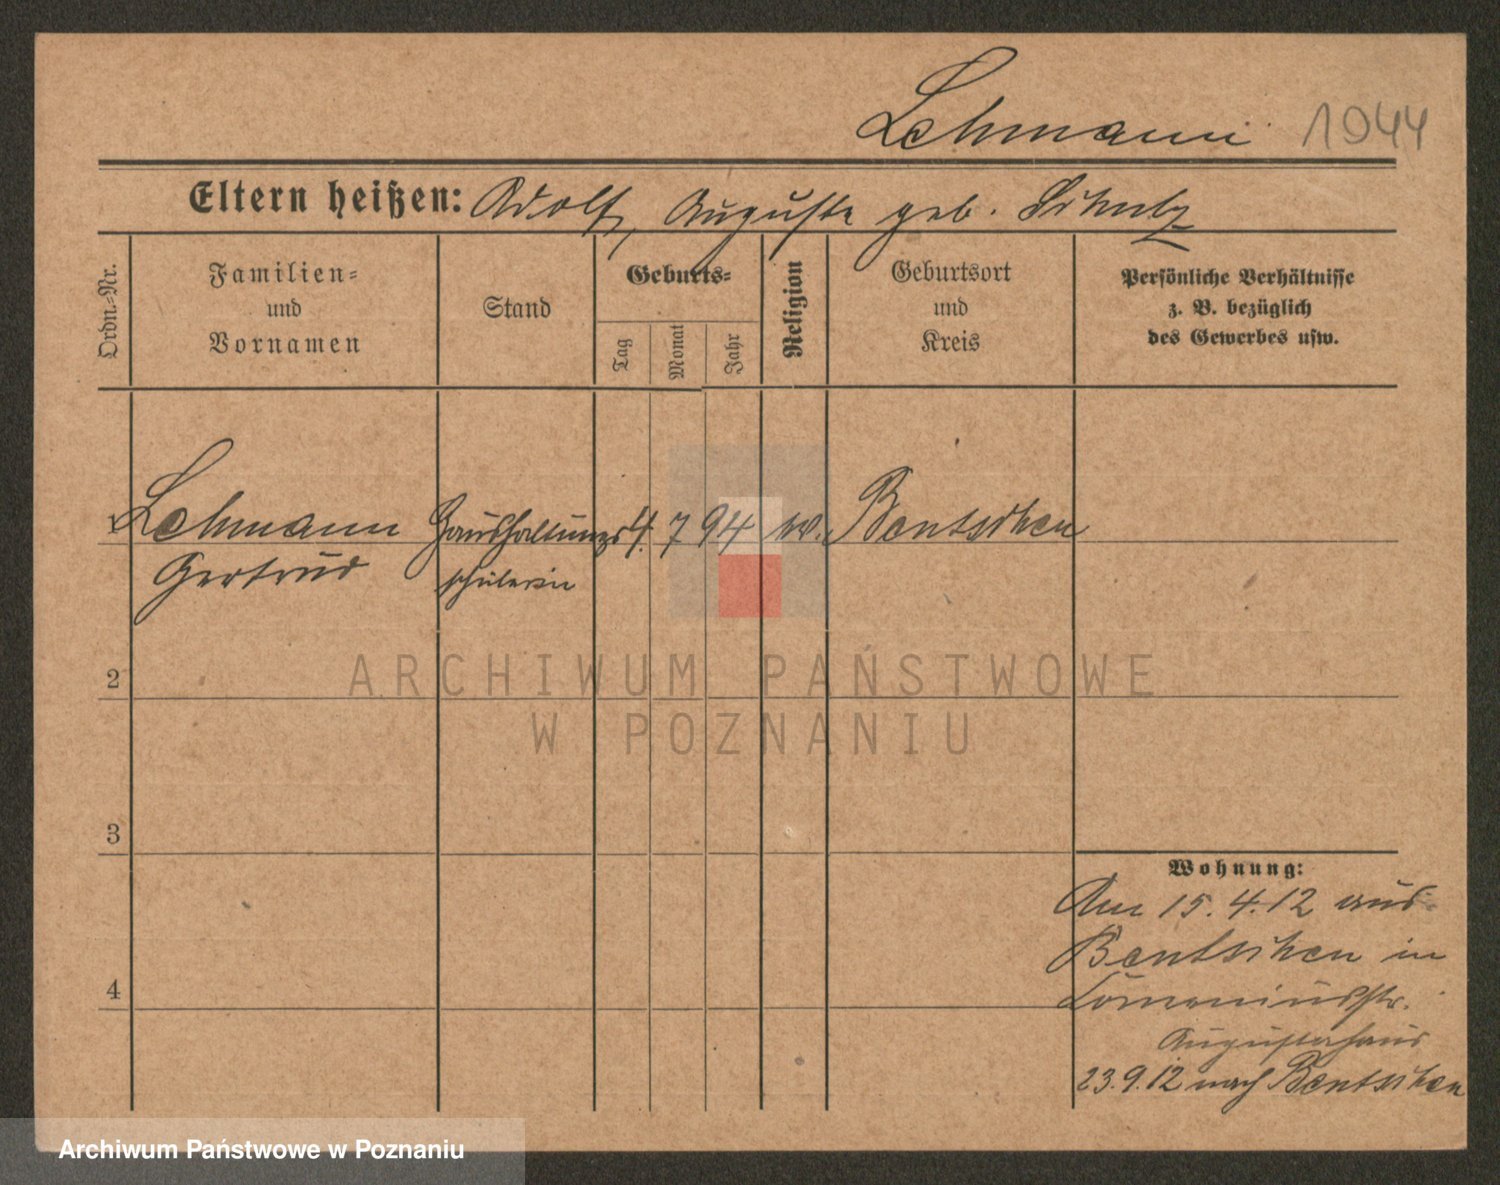 Lehmann 1944
Eltern heißen: Adolf, Auguste geb. Schulz
Ordn.-Nr.
Familien-
und
Vornamen
Stand
Geburts-
Tag
Monat
Jahr
Religion
Geburtsort
und
Kreis
Persönliche Verhältnisse
z. B. bezüglich
des Gewerbes usw.
1 Lehmann Haushaltungs 4. 7 94 ev. Bentschen
Gertrud schülerin
2
ARCHIWUM PAŃSTWOWE
W POZNANIU
3
Wohnung:
Am 15. 4. 12 aus
Bentschen in
4
Comeniusstr.
Augustahaus
23. 9. 12 nach Bentschen
Archiwum Państwowe w Poznaniu